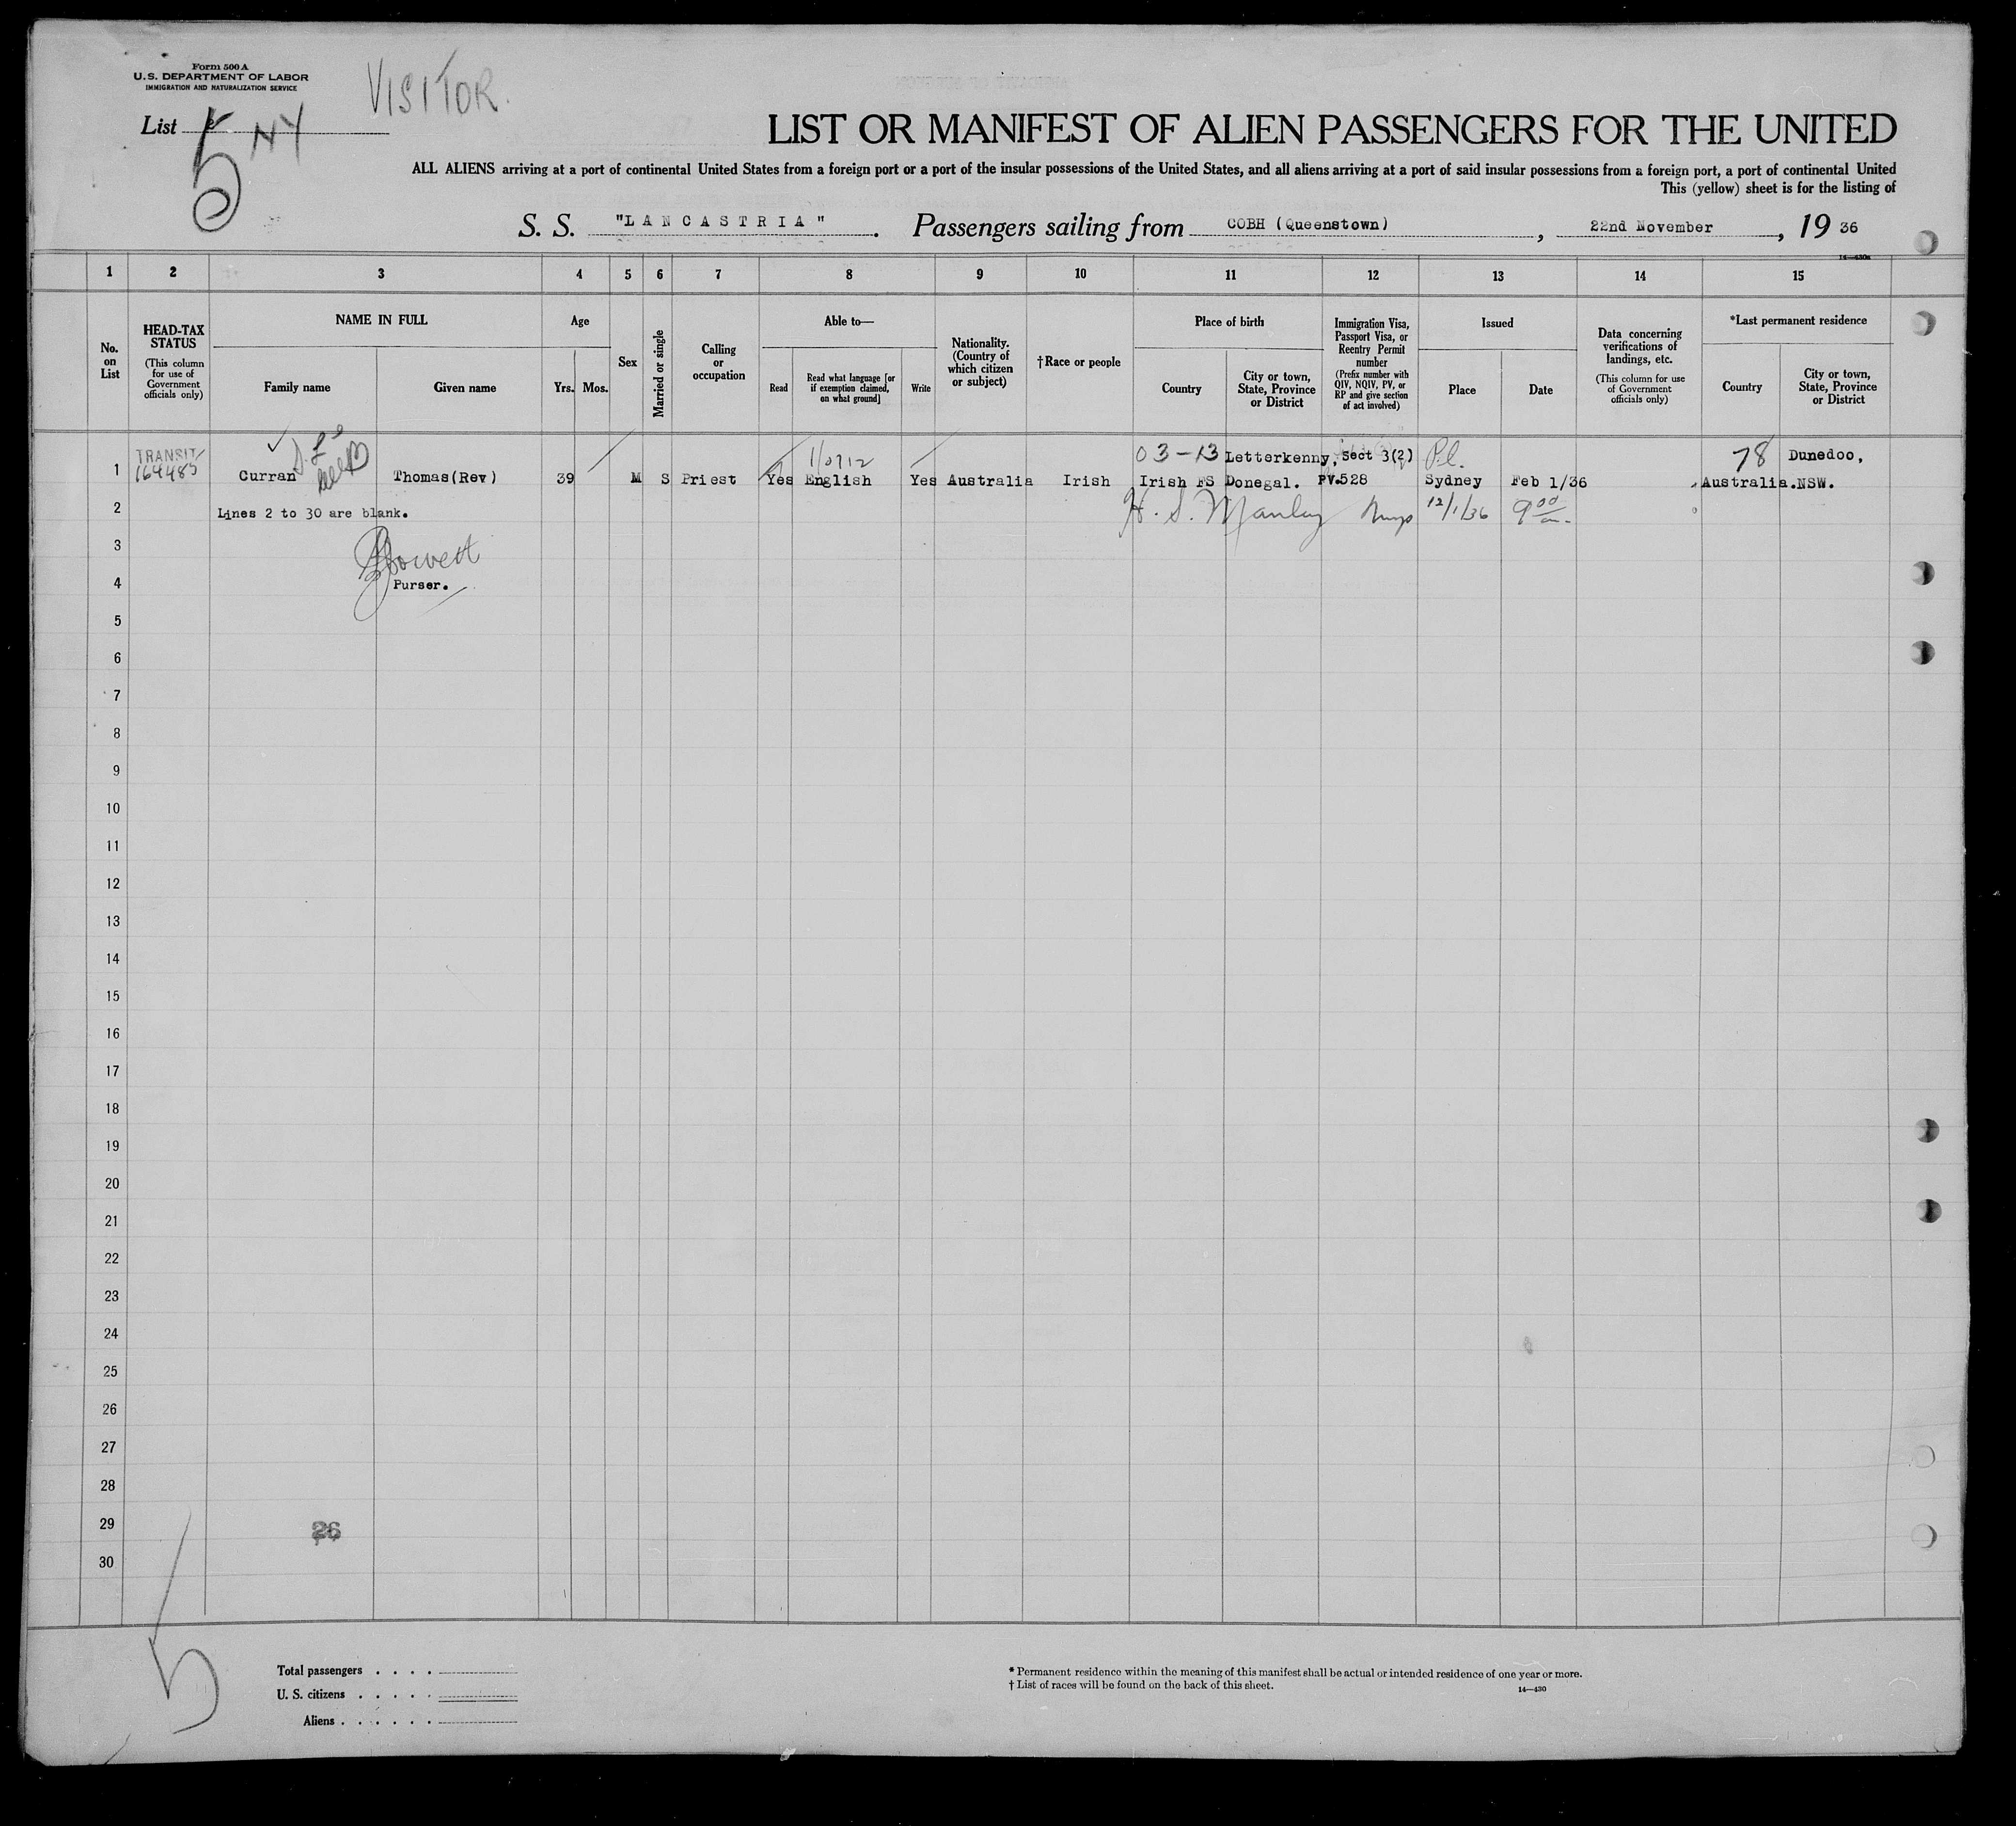 Form 500 A
U.S. DEPARTMENT OF LABOR
IMMIGRATION AND NATURALIZATION SERVICE
VISITOR.
List 5 NY
LIST OR MANIFEST OF ALIEN PASSENGERS FOR THE UNITED
ALL ALIENS arriving at a port of continental United States from a foreign port or a port of the insular possessions of the United States, and all aliens arriving at a port of said insular possessions from a foreign port, a port of continental United
This (yellow) sheet is for the listing of
S. S. "LANCASTRIA". Passengers sailing from COBH (Queenstown), 22nd November, 19 36
14—430a
1 2 3 4 5 6 7 8 9 10 11 12 13 14 15
No. on List
HEAD-TAX STATUS
(This column for use of Government officials only)
NAME IN FULL
Family name
Given name
Age
Yrs. Mos.
Sex
Married or single
Calling or occupation
Able to—
Read
Read what language [or if exemption claimed, on what ground]
Write
Nationality. (Country of which citizen or subject)
†Race or people
Place of birth
Country
City or town, State, Province or District
Immigration Visa, Passport Visa, or Reentry Permit number
(Prefix number with QIV, NQIV, PV, or RP and give section of act involved)
Issued
Place
Date
Data concerning verifications of landings, etc.
(This column for use of Government officials only)
*Last permanent residence
Country
City or town, State, Province or District
TRANSIT 03-13 Letterkenny, Sect 3(2) P.l. 78 Dunedoo,
1 164485 Curran Thomas(Rev) 39 M S Priest Yes English Yes Australia Irish Irish FS Donegal. PV.528 Sydney Feb 1/36 Australia.NSW.
2 Lines 2 to 30 are blank. H. S. Manley 12/1/36 9 00
3
4 Purser.
5
6
7
8
9
10
11
12
13
14
15
16
17
18
19
20
21
22
23
24
25
26
27
28
29 26
30
5
Total passengers . . . .
U. S. citizens . . . . .
Aliens . . . . . .
* Permanent residence within the meaning of this manifest shall be actual or intended residence of one year or more.
† List of races will be found on the back of this sheet.
14—430